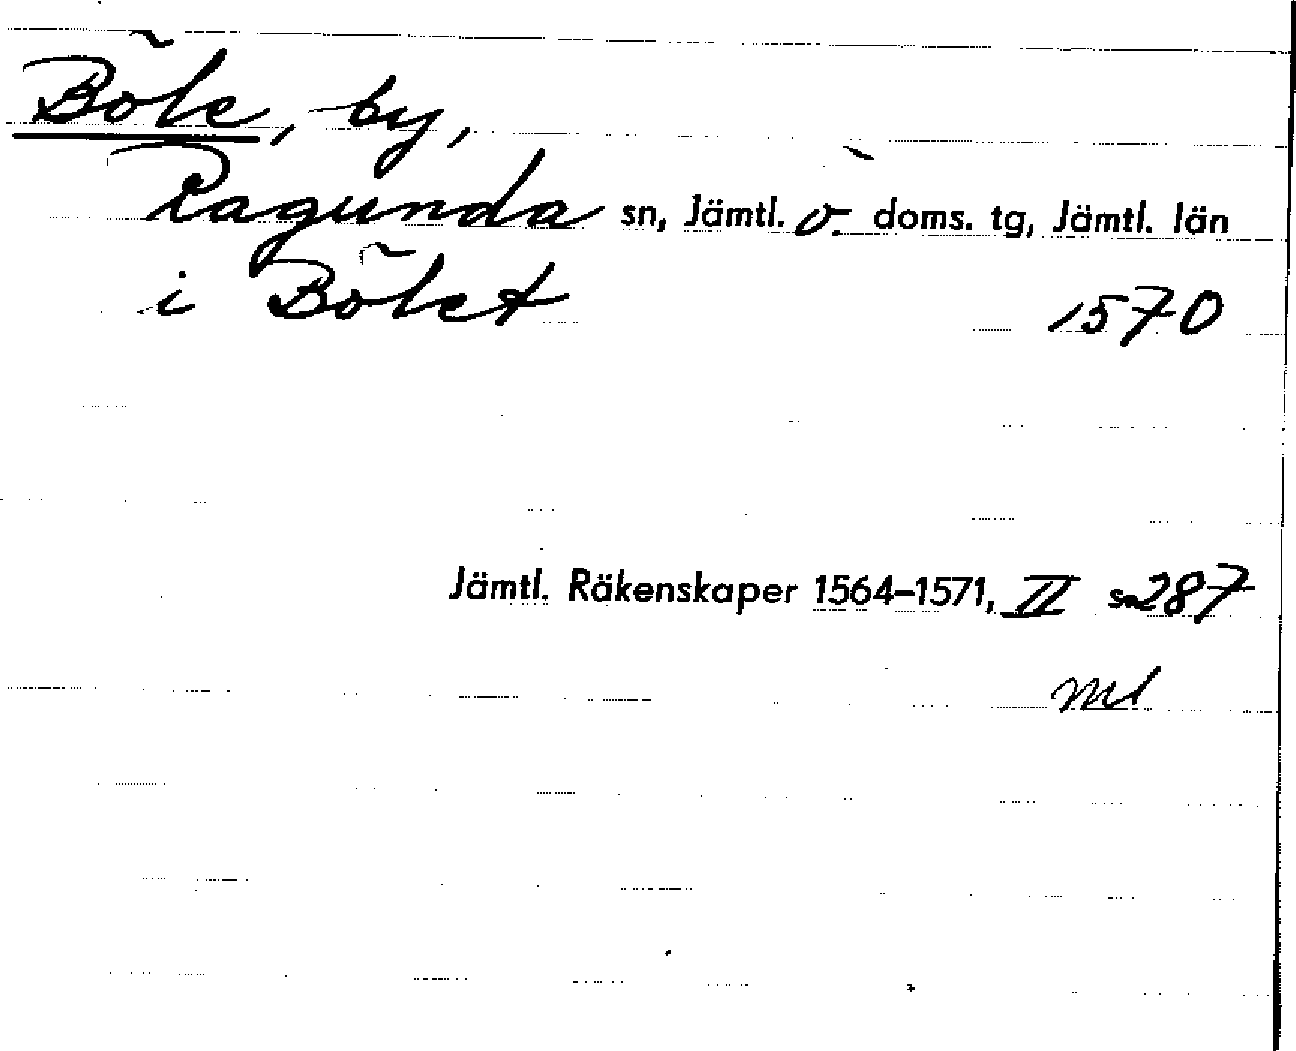 Böle, by,
Ragunda sn, Jämtl. ö. doms. tg, Jämtl. län
i Bölet 1570
Jämtl. Räkenskaper 1564–1571, II s. 287